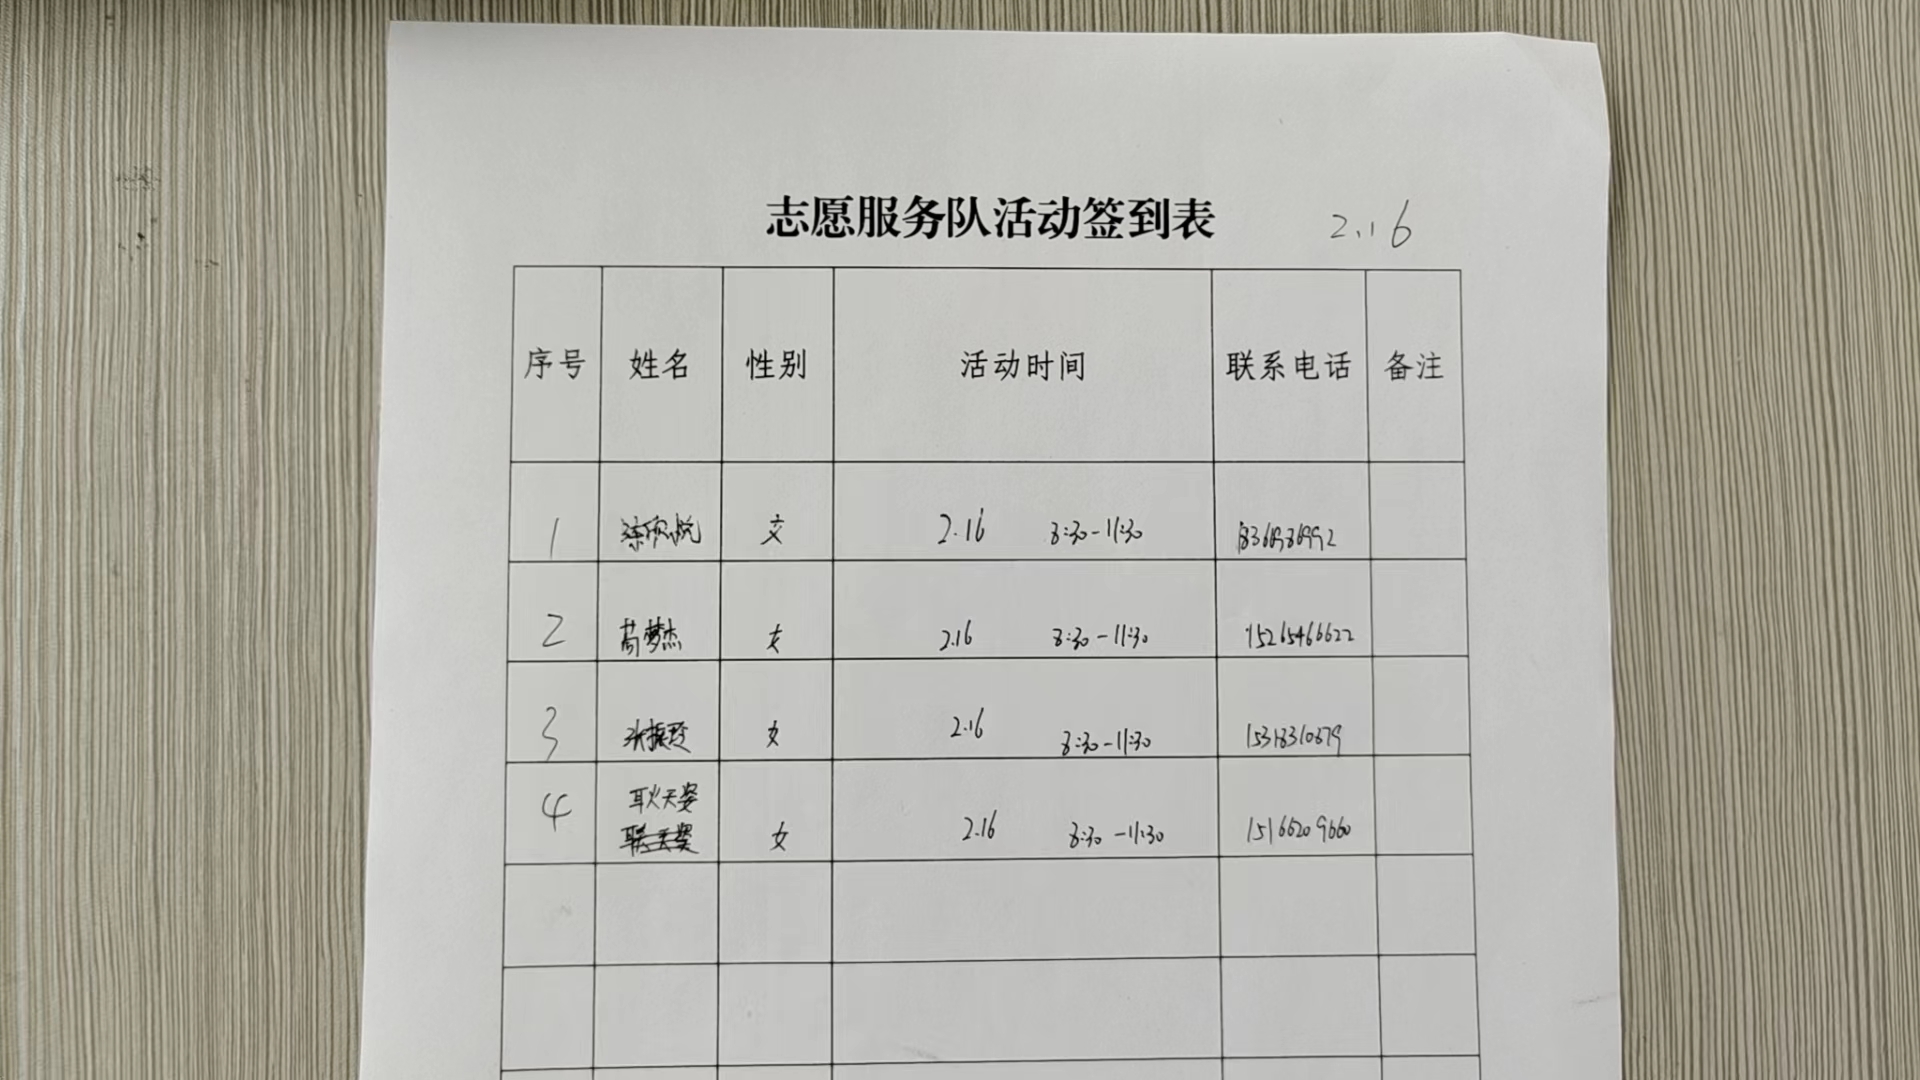 志愿服务队活动签到表 2.16
序号 姓名 性别 活动时间 联系电话 备注
1 女 2.16 8:30-11:30
2 苟梦杰 女 2.16 8:30-11:30 15265466622
3 女 2.16 8:30-11:30
4 耿天姿 女 2.16 8:30-11:30 15166209660